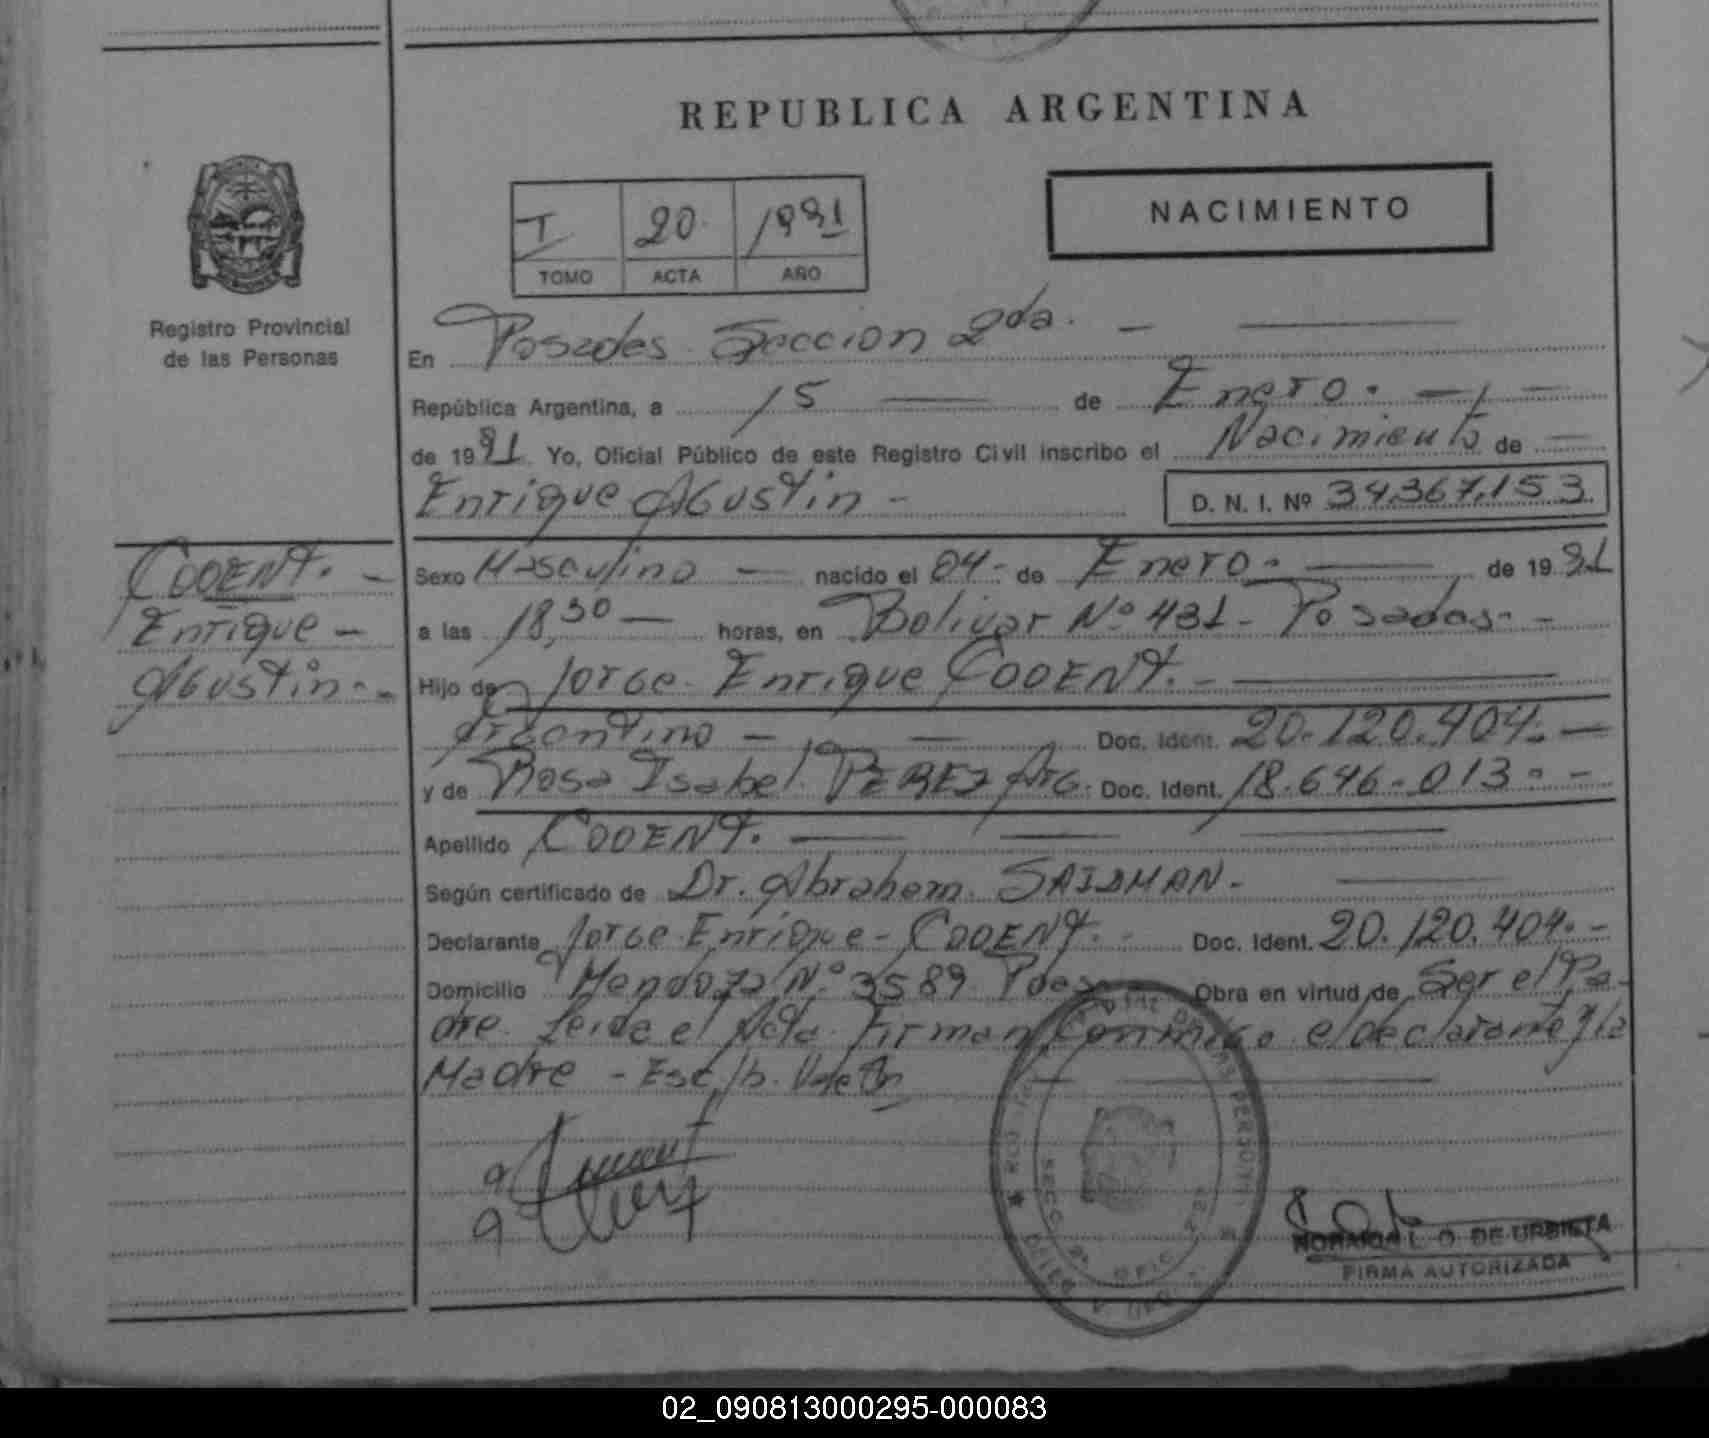 REPUBLICA ARGENTINA
NACIMIENTO
I 20. 1991
TOMO ACTA AÑO
Registro Provincial
de las Personas
En Posadas Sección 2da. —
República Argentina, a 15 — de Enero. —
de 1991. Yo, Oficial Público de este Registro Civil inscribo el Nacimiento de —
Enrique Agustin -
D. N. I. Nº 34.367.153
COOENT. -
Enrique -
Agustin. -
Sexo Masculino — nacido el 04- de Enero. — de 1991
a las 18,30 — horas, en Bolivar Nº 431 - Posadas. -
Hijo de Jorge Enrique COOENT. -
Argentino — — Doc. Ident. 20.120.404. —
y de Rosa Isabel PEREZ Arg. Doc. Ident. 18.646.013. -
Apellido COOENT. —
Según certificado de Dr. Abraham SAIDMAN. -
Declarante Jorge Enrique - COOENT. - Doc. Ident. 20.120.404. -
Domicilio Mendoza Nº 3589 Obra en virtud de Ser el Pa-
dre. Leida el Acta Firman Conmigo el declarante y la
Madre -
SECC. 2ª OFIC.
L. O. DE URBIETA
FIRMA AUTORIZADA
02_090813000295-000083